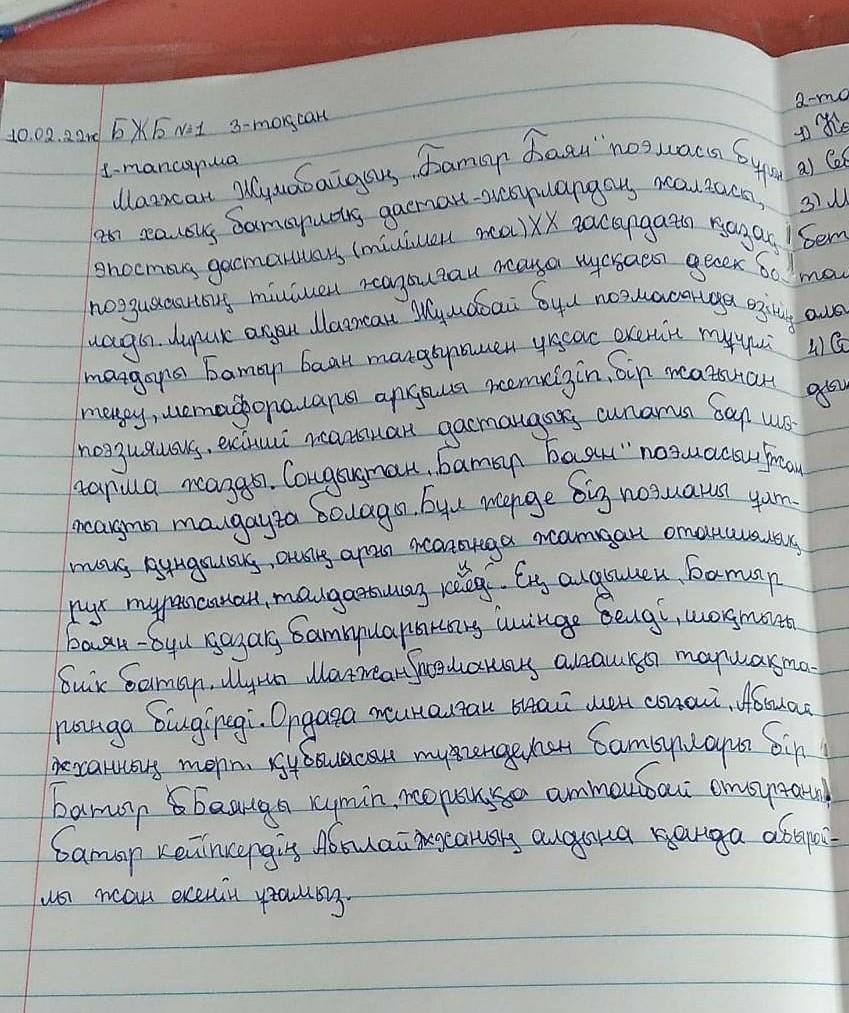 10.02.22ж БЖБ №1 3-тоқсан
1-тапсырма
Мағжан Жұмабайдың „Батыр Баян" поэмасы бұрын
ғы халық батырлық дастан-жырлардың жалғасы,
эпостық дастанның (тілімен жа) XX ғасырдағы қазақ
поэзиясының тілімен жазылған жаңа нұсқасы десек бо-
лады. Лирик ақын Мағжан Жұмабай бұл поэмасында өзінің
тағдыры Батыр Баян тағдырымен ұқсас екенін түрлі
теңеу, метафоралары арқылы жеткізіп, бір жағынан
поэзиялық, екінші жағынан дастандық сипаты бар шы-
ғарма жазды. Сондықтан „Батыр Баян" поэмасын жан
жақты талдауға болады. Бұл жерде біз поэманы ұлт-
тық құндылық, оның арғы жағында жатқан отаншылық
рух тұрғысынан, талдағымыз кейді. Ең алдымен, Батыр
Баян - бұл қазақ батырларының ішінде белді, шоқтығы
биік батыр. Мұны Мағжан поэманың алғашқы тармақта-
рында білдіреді. Ордаға жиналған ығай мен сығай, Абылай
жханның төрт құбыласын түгендеген батырлары бір
Батыр Баянды күтіп, жорыққа аттанбай отырғаны
батыр кейіпкердің Абылайжханың алдына қанда абырой-
лы жан екенін ұғамыз.
2-та
1) Ж
2) Се
3) М
бет
та
алы
4) С